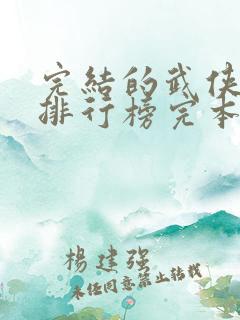 完結的武俠
排行榜完本
楊建強
未经同意禁止转载